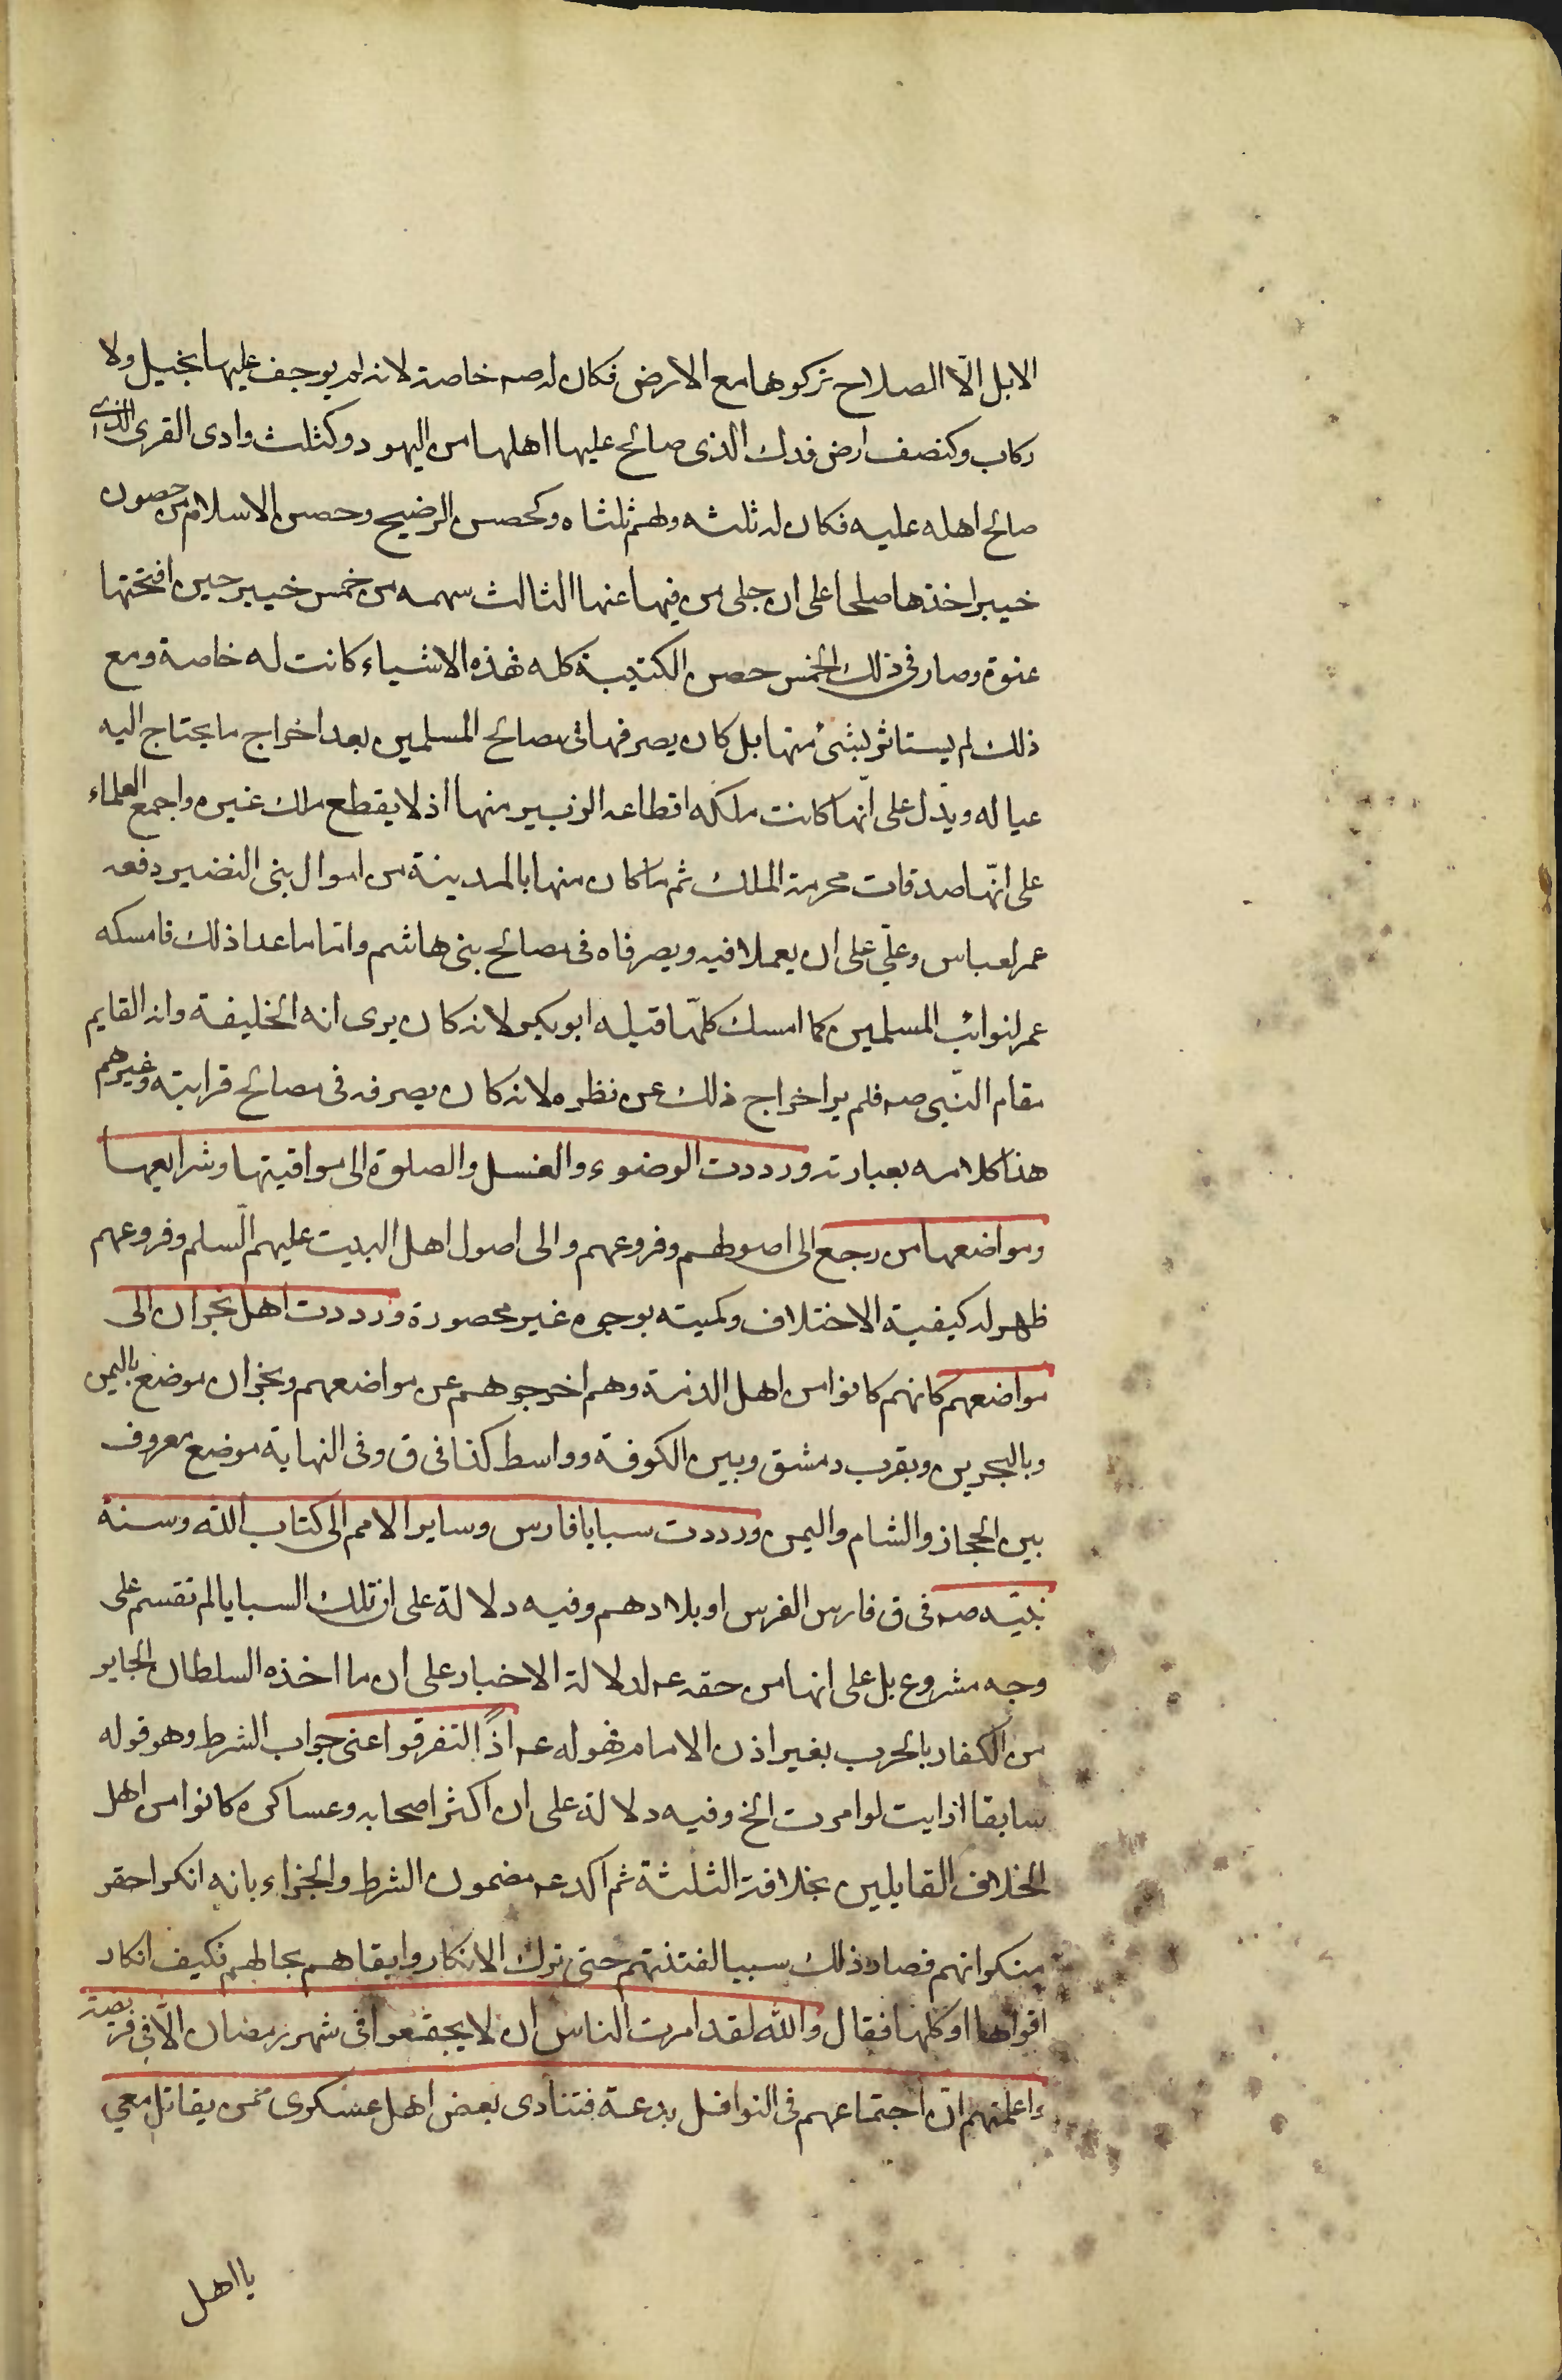 الابل الّا الصلاح تركوها مع الارض فكان له صه خاصة لانه لم يوجف عليها بخيل ولا
ركاب وكنصف ارض فدك الذى صالح عليها اهلها من اليهود وكثلث وادى القرى الذى
صالح اهله عليه فكان له ثلثه ولهم ثلثاه وكحصن الرضيح وحصن الاسلام من حصون
خيبر اخذها صلحا على ان جلى من فيها عنها الثالث سهمه من خمس خيبر حين افتحتها
عنوة وصار فى ذلك الخمس حصن الكتيبة كله فهذه الاشياء كانت له خاصة ومع
ذلك لم يستاثر بشئ منها بل كان يصرفها فى مصالح المسلمين بعد اخراج ما يحتاج اليه
عياله ويدّل على انّها كانت ملكه اقطاعه الزبير منها اذ لا يقطع ملك غيره واجمع العلماء
على انّها صدقات محرمة الملك ثم ما كان منها بالمدينة من اموال بنى النضير دفعه
عمر لعباس وعلّي على ان يعملا فيه ويصرفاه فى مصالح بنى هاشم وامّا ما عدا ذلك فامسكه
عمر لنوائب المسلمين كما امسك كلّها قبله ابو بكر لانه كان يرى انه الخليفة وانه القايم
مقام النّبى صه فلم ير اخراج ذلك عن نظره لانه كان يصرفه فى مصالح قرابته وغيرهم
هذا كلامه بعبارته ورددت الوضوء والغسل والصلوة الى مواقيتها وشرايعها
ومواضعها من رجع الى اصولهم وفروعهم والى اصول اهل البيت عليهم السّلم وفروعهم
ظهر له كيفية الاختلاف وكميته بوجوه غير محصورة ورددت اهل نجران الى
مواضعهم كانهم كانوا من اهل الذمة وهم اخرجوهم عن مواضعهم ونجران موضع باليمن
وبالبحرين وبقرب دمشق وبين الكوفة وواسط كذا فى ق وفى النهاية موضع معروف
بين الحجاز والشام واليمن ورددت سبايا فارس وساير الامم الى كتاب الله وسنة
نبيّه صه فى ق فارس الفرس او بلادهم وفيه دلالة على ان تلك السبايا لم تقسم على
وجه مشروع بل على انها من حقه عه لدلالة الاخبار على ان ما اخذه السلطان الجاير
من الكفار بالحرب بغير اذن الامام فهو له عه اذًا لتفرقوا عنى جواب الشرط وهو قوله
سابقا ارايت لو امرت الخ وفيه دلالة على ان اكثر اصحابه وعساكره كانوا من اهل
الخلاف القايلين بخلافة الثلثة ثم اكد عه مضمون الشرط والجزاء بانه انكر احقر
منكراتهم فصار ذلك سببا لفتنتهم حتى ترك الانكار وابقاهم بحالهم فكيف انكار
اقواها او كلها فقال والله لقد امرت الناس ان لا يجتمعوا فى شهر رمضان الّا فى فريضة
واعلمتهم انّ اجتماعهم فى النوافل بدعة فتنادى بعض اهل عسكرى ممّن يقاتل معي
يا اهل